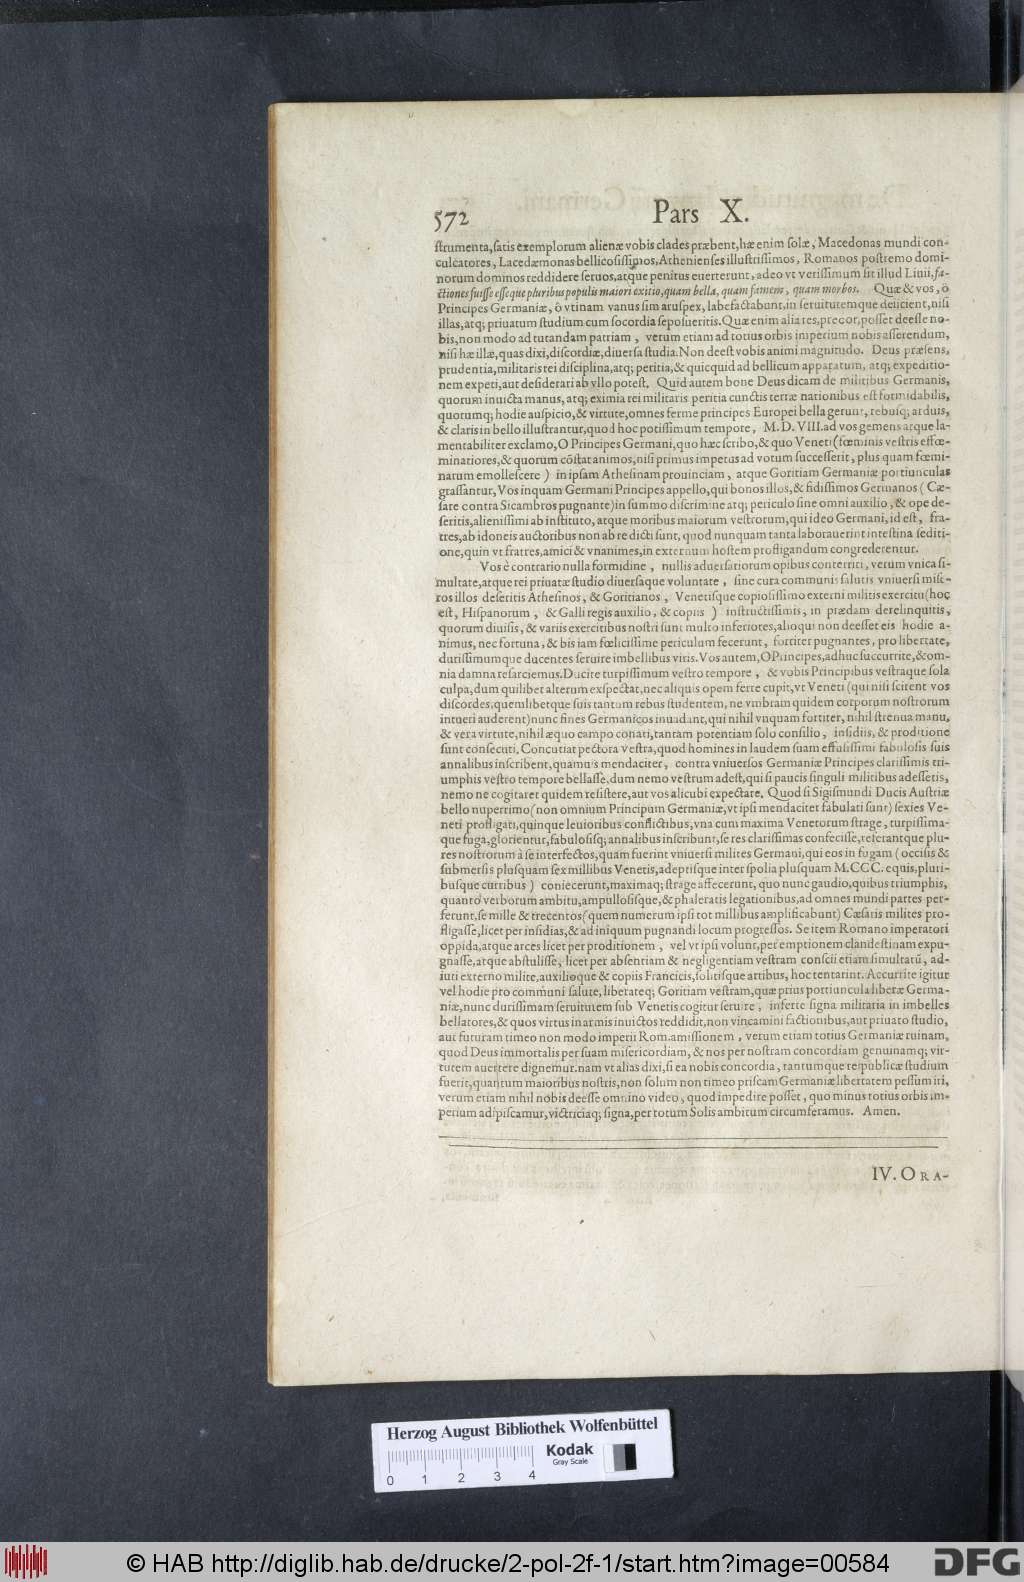 572 Pars X.
ſtrumenta, ſatis exemplorum alienæ vobis clades præbent, hæ enim ſolæ, Macedonas mundi con-
culcatores, Lacedæmonas bellicoſiſſimos, Athenienſes illuſtriſſimos, Romanos poſtremo domi-
norum dominos reddidere ſeruos, atque penitus euerterunt, adeo vt veriſſimum ſit illud Liuii, fa-
ctiones fuiſſe eſſeque pluribus populis maiori exitio, quam bella, quam famem, quam morbos. Quæ & vos, ô
Principes Germaniæ, ô vtinam vanus ſim aruſpex, labefactabunt, in ſeruitutemque deiicient, niſi
illas, atq; priuatum ſtudium cum ſocordia ſepoſueritis. Quæ enim alia res, precor, poſſet deeſſe no-
bis, non modo ad tutandam patriam, verum etiam ad totius orbis imperium nobis aſſerendum,
niſi hæ illæ, quas dixi, diſcordiæ, diuerſa ſtudia. Non deeſt vobis animi magnitudo. Deus præſens,
prudentia, militaris rei diſciplina, atq; peritia, & quicquid ad bellicum apparatum, atq; expeditio-
nem expeti, aut deſiderari ab vllo poteſt. Quid autem bone Deus dicam de militibus Germanis,
quorum inuicta manus, atq; eximia rei militaris peritia cunctis terræ nationibus eſt formidabilis,
quorumq; hodie auſpicio, & virtute, omnes ferme principes Europei bella gerunt, rebuſq; arduis,
& claris in bello illuſtrantur, quod hoc potiſſimum tempore, M.D.VIII. ad vos gemens atque la-
mentabiliter exclamo, O Principes Germani, quo hæc ſcribo, & quo Veneti (fœminis veſtris effœ-
minatiores, & quorum cõſtat animos, niſi primus impetus ad votum ſucceſſerit, plus quam fœmi-
narum emolleſcere) in ipſam Atheſinam prouinciam, atque Goritiam Germaniæ portiunculas
graſſantur, Vos inquam Germani Principes appello, qui bonos illos, & fidiſſimos Germanos (Cæ-
ſare contra Sicambros pugnante) in ſummo diſcrimine atq; periculo ſine omni auxilio, & ope de-
ſeritis, alieniſſimi ab inſtituto, atque moribus maiorum veſtrorum, qui ideo Germani, id eſt, fra-
tres, ab idoneis auctoribus non ab re dicti ſunt, quod nunquam tanta laborauerint inteſtina ſediti-
one, quin vt fratres, amici & vnanimes, in externum hoſtem profligandum congrederentur.
Vos è contrario nulla formidine, nullis aduerſariorum opibus conterriti, verum vnica ſi-
multate, atque rei priuatæ ſtudio diuerſaque voluntate, ſine cura communis ſalutis vniuerſi miſe-
ros illos deſeritis Atheſinos, & Goritianos, Venetiſque copioſiſſimo externi militis exercitu (hoc
eſt, Hiſpanorum, & Galli regis auxilio, & copiis) inſtructiſſimis, in prædam derelinquitis,
quorum diuiſis, & variis exercitibus noſtri ſunt multo inferiores, alioqui non deeſſet eis hodie a-
nimus, nec fortuna, & bis iam fœliciſſime periculum fecerunt, fortiter pugnantes, pro libertate,
duriſſimumque ducentes ſeruire imbellibus viris. Vos autem, O Principes, adhuc ſuccurrite, & om-
nia damna reſarciemus. Ducite turpiſſimum veſtro tempore, & vobis Principibus veſtraque ſola
culpa, dum quilibet alterum exſpectat, nec aliquis opem ferre cupit, vt Veneti (qui niſi ſcirent vos
diſcordes, quemlibetque ſuis tantum rebus ſtudentem, ne vmbram quidem corporum noſtrorum
intueri auderent) nunc fines Germanicos inuadant, qui nihil vnquam fortiter, nihil ſtrenua manu,
& vera virtute, nihil æquo campo conati, tantam potentiam ſolo conſilio, inſidiis, & proditione
ſunt conſecuti. Concutiat pectora veſtra, quod homines in laudem ſuam effuſiſſimi fabuloſis ſuis
annalibus inſcribent, quamuis mendaciter, contra vniuerſos Germaniæ Principes clariſſimis tri-
umphis veſtro tempore bellaſſe, dum nemo veſtrum adeſt, qui ſi paucis ſinguli militibus adeſſetis,
nemo ne cogitaret quidem reſiſtere, aut vos alicubi expectare. Quod ſi Sigiſmundi Ducis Auſtriæ
bello nuperrimo (non omnium Principum Germaniæ, vt ipſi mendaciter fabulati ſunt) ſexies Ve-
neti profligati, quinque leuioribus conflictibus, vna cum maxima Venetorum ſtrage, turpiſſima-
que fuga, glorientur, fabuloſiſq; annalibus inſcribunt, ſe res clariſſimas confeciſſe, referantque plu-
res noſtrorum à ſe interfectos, quam fuerint vniuerſi milites Germani, qui eos in fugam (occiſis &
ſubmerſis pluſquam ſex millibus Venetis, adeptiſque inter ſpolia pluſquam M.CCC. equis, pluri-
buſque curribus) coniecerunt, maximaq; ſtrage affecerunt, quo nunc gaudio, quibus triumphis,
quanto verborum ambitu, ampulloſiſque, & phaleratis legationibus, ad omnes mundi partes per-
ferunt, ſe mille & trecentos (quem numerum ipſi tot millibus amplificabunt) Cæſaris milites pro-
fligaſſe, licet per inſidias, & ad iniquum pugnandi locum progreſſos. Se item Romano imperatori
oppida, atque arces licet per proditionem, vel vt ipſi volunt, per emptionem clandeſtinam expu-
gnaſſe, atque abſtuliſſe, licet per abſentiam & negligentiam veſtram conſcii etiam ſimultatũ, ad-
iuti externo milite, auxilioque & copiis Francicis, ſolitiſque artibus, hoc tentarint. Accurrite igitur
vel hodie pro communi ſalute, libertateq; Goritiam veſtram, quæ prius portiuncula liberæ Germa-
niæ, nunc duriſſimam ſeruitutem ſub Venetis cogitur ſeruire, inferte ſigna militaria in imbelles
bellatores, & quos virtus in armis inuictos reddidit, non vincamini factionibus, aut priuato ſtudio,
aut futuram timeo non modo imperii Rom. amiſſionem, verum etiam totius Germaniæ ruinam,
quod Deus immortalis per ſuam miſericordiam, & nos per noſtram concordiam genuinamq; vir-
tutem auertere dignemur. nam vt alias dixi, ſi ea nobis concordia, tantumque reipublicæ ſtudium
fuerit, quantum maioribus noſtris, non ſolum non timeo priſcam Germaniæ libertatem peſſum iri,
verum etiam nihil nobis deeſſe omnino video, quod impedire poſſet, quo minus totius orbis im-
perium adipiſcamur, victriciaq; ſigna, per totum Solis ambitum circumferamus. Amen.
IV. ORA-
Herzog August Bibliothek Wolfenbüttel
Kodak
Gray Scale
0 1 2 3 4
© HAB http://diglib.hab.de/drucke/2-pol-2f-1/start.htm?image=00584
DFG